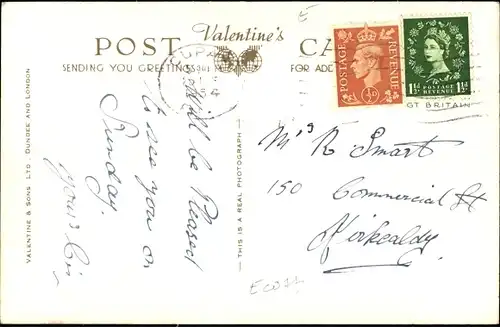 Valentine's
POST CA
SENDING YOU GREETINGS
FOR ADD
POSTAGE REVENUE
½D
1½D POSTAGE REVENUE 1½D
GT BRITAIN
VALENTINE & SONS LTD. DUNDEE AND LONDON
THIS IS A REAL PHOTOGRAPH
will be Pleased
to see you on
Sunday.
yours
Mrs R Smart
150
Commercial St
Kirkcaldy
E